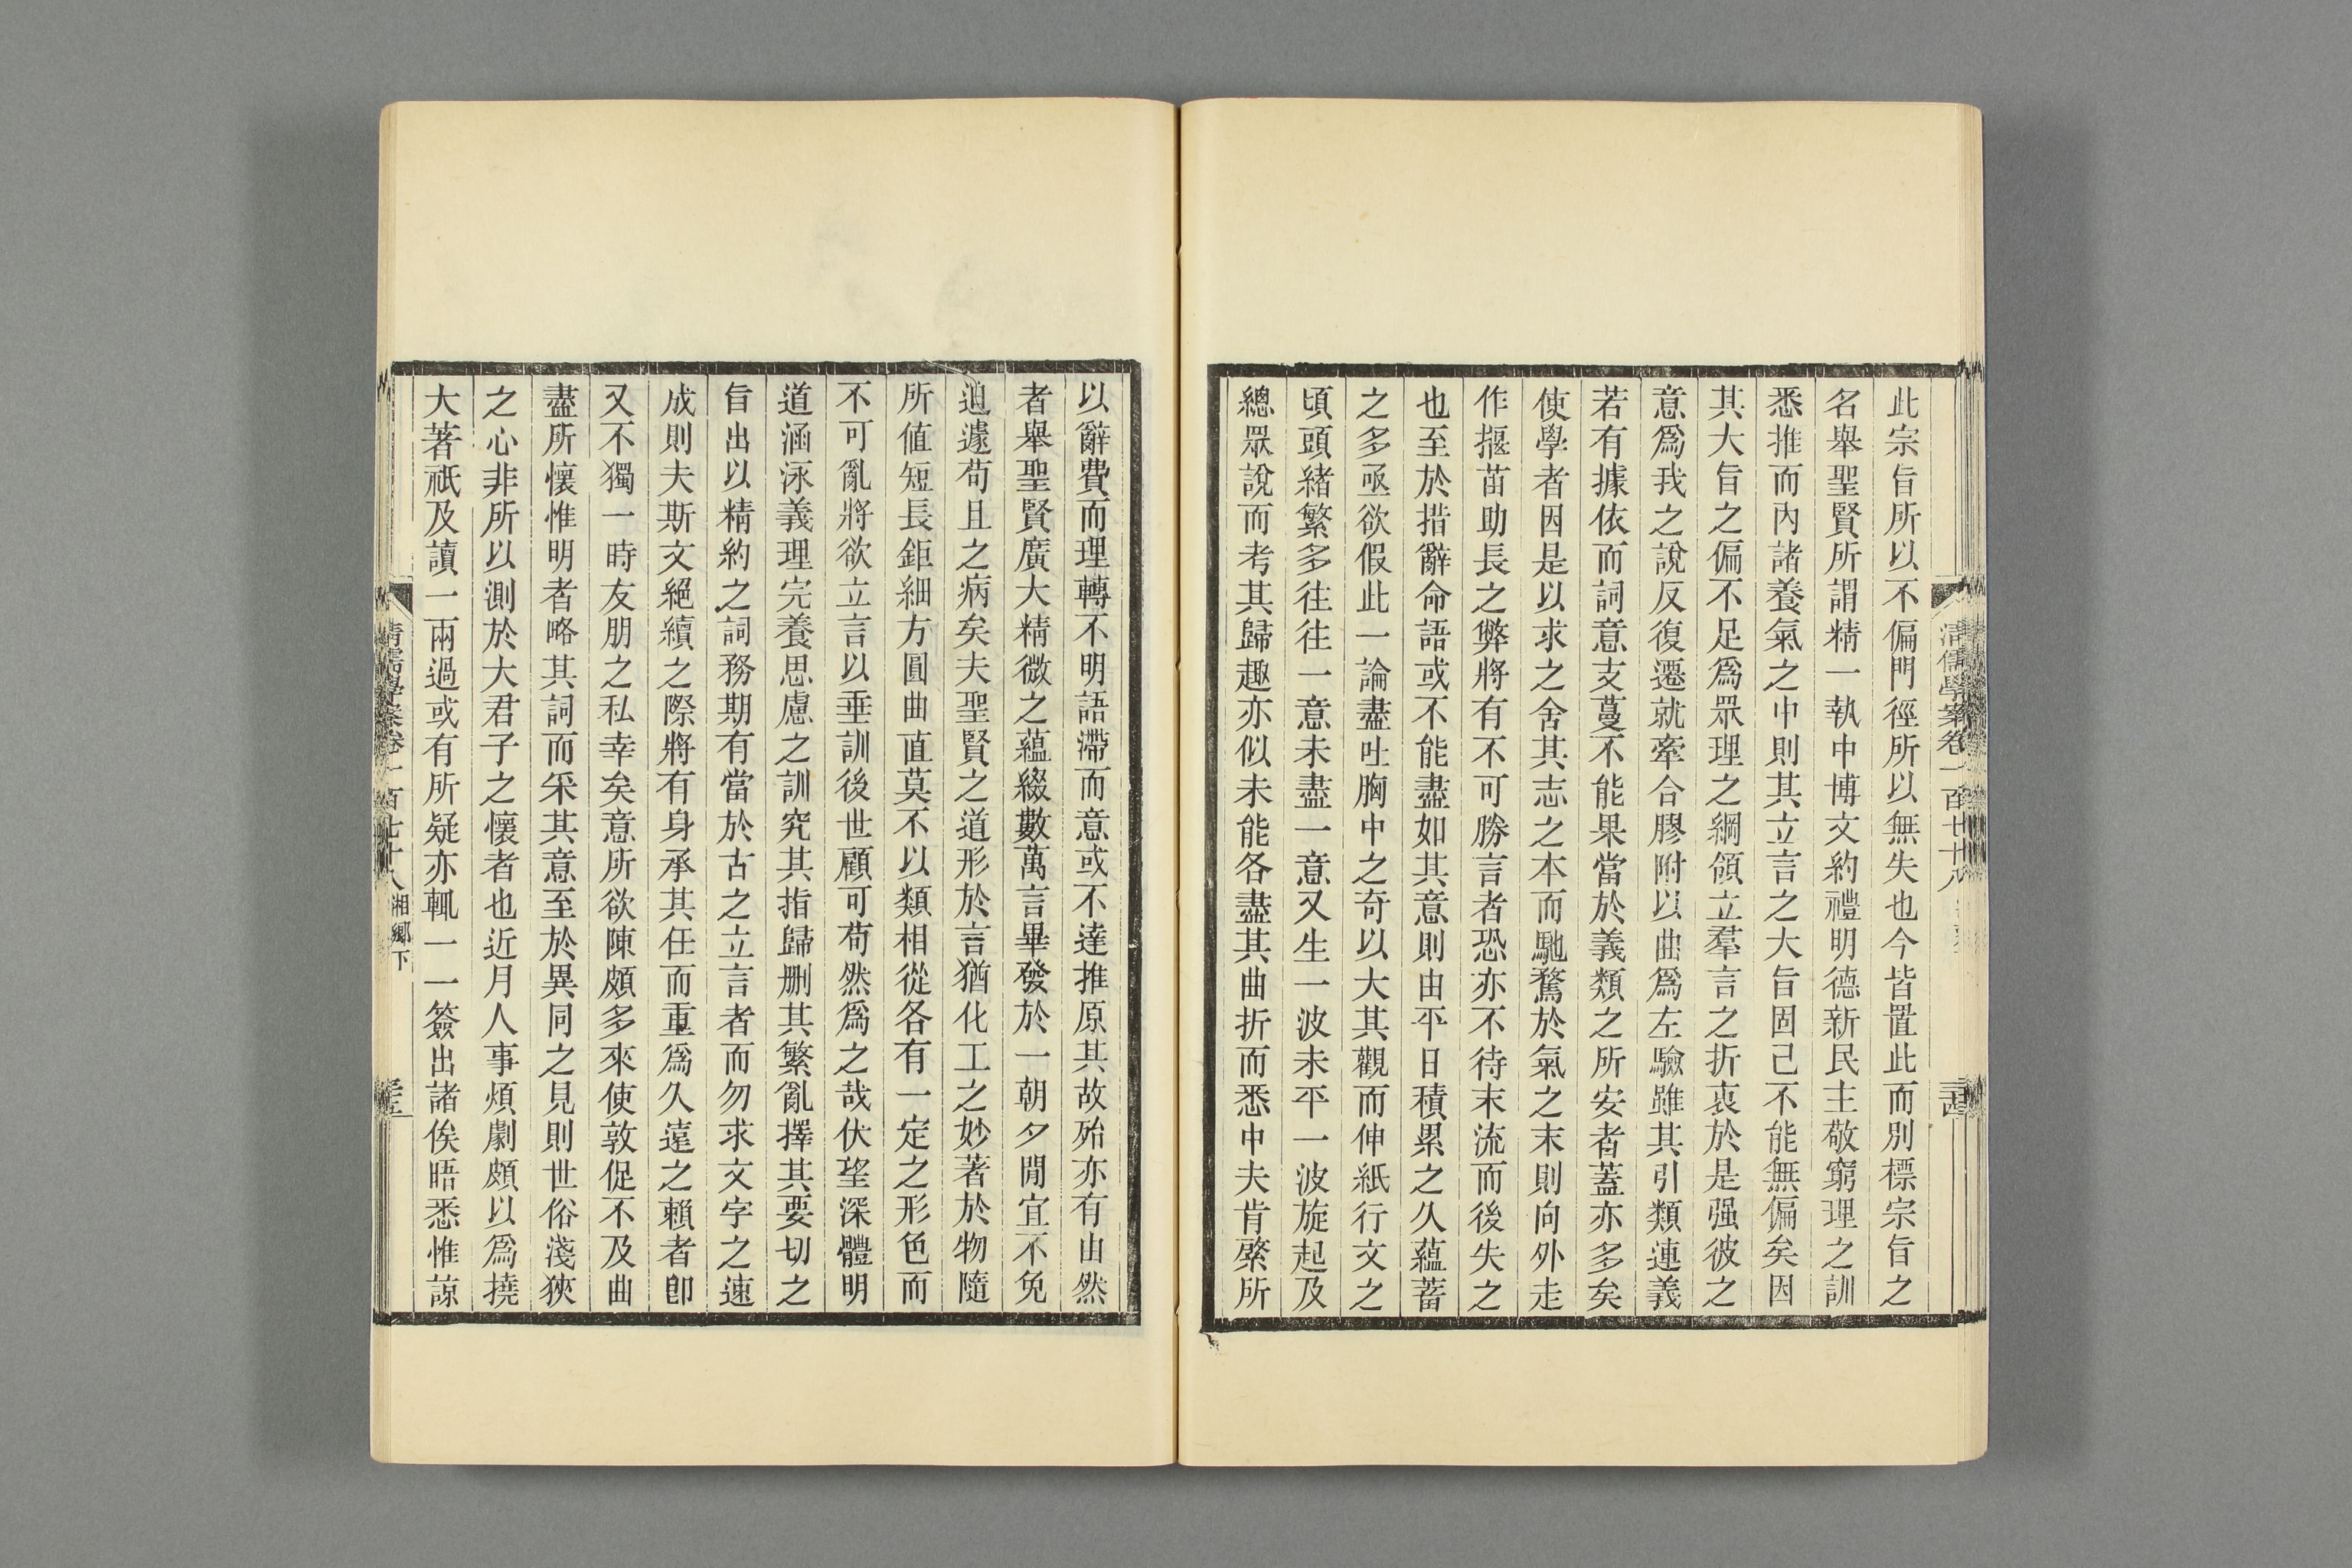 此宗旨所以不偏門徑所以無失也今皆置此而別標宗旨之
名舉聖賢所謂精一執中博文約禮明德新民主敬窮理之訓
悉推而內諸養氣之中則其立言之大旨固己不能無偏矣因
其大旨之偏不足爲眾理之綱領立羣言之折衷於是强彼之
意爲我之說反復遷就牽合膠附以曲爲左驗雖其引類連義
若有據依而詞意支蔓不能果當於義類之所安者蓋亦多矣
使學者因是以求之舍其志之本而馳騖於氣之末則向外走
作揠苗助長之弊將有不可勝言者恐亦不待末流而後失之
也至於措辭命語或不能盡如其意則由平日積累之久蘊蓄
之多亟欲假此一論盡吐胸中之奇以大其觀而伸紙行文之
頃頭緒繁多往往一意未盡一意又生一波未平一波旋起及
總眾說而考其歸趣亦似未能各盡其曲折而悉中夫肯綮所
以辭費而理轉不明語滯而意或不達推原其故殆亦有由然
者舉聖賢廣大精微之蘊綴數萬言畢發於一朝夕閒宜不免
迫遽苟且之病矣夫聖賢之道形於言猶化工之妙著於物隨
所值短長鉅細方圓曲直莫不以類相從各有一定之形色而
不可亂將欲立言以垂訓後世顧可苟然爲之哉伏望深體明
道涵泳義理完養思慮之訓究其指歸刪其繁亂擇其要切之
旨出以精約之詞務期有當於古之立言者而勿求文字之速
成則夫斯文絕續之際將有身承其任而重爲久遠之賴者卽
又不獨一時友朋之私幸矣意所欲陳頗多來使敦促不及曲
盡所懷惟明者略其詞而采其意至於異同之見則世俗淺狹
之心非所以測於大君子之懷者也近月人事煩劇頗以爲撓
大著祇及讀一兩過或有所疑亦輒一一簽出諸俟晤悉惟諒
清儒學案卷一百七十八
湘鄉下